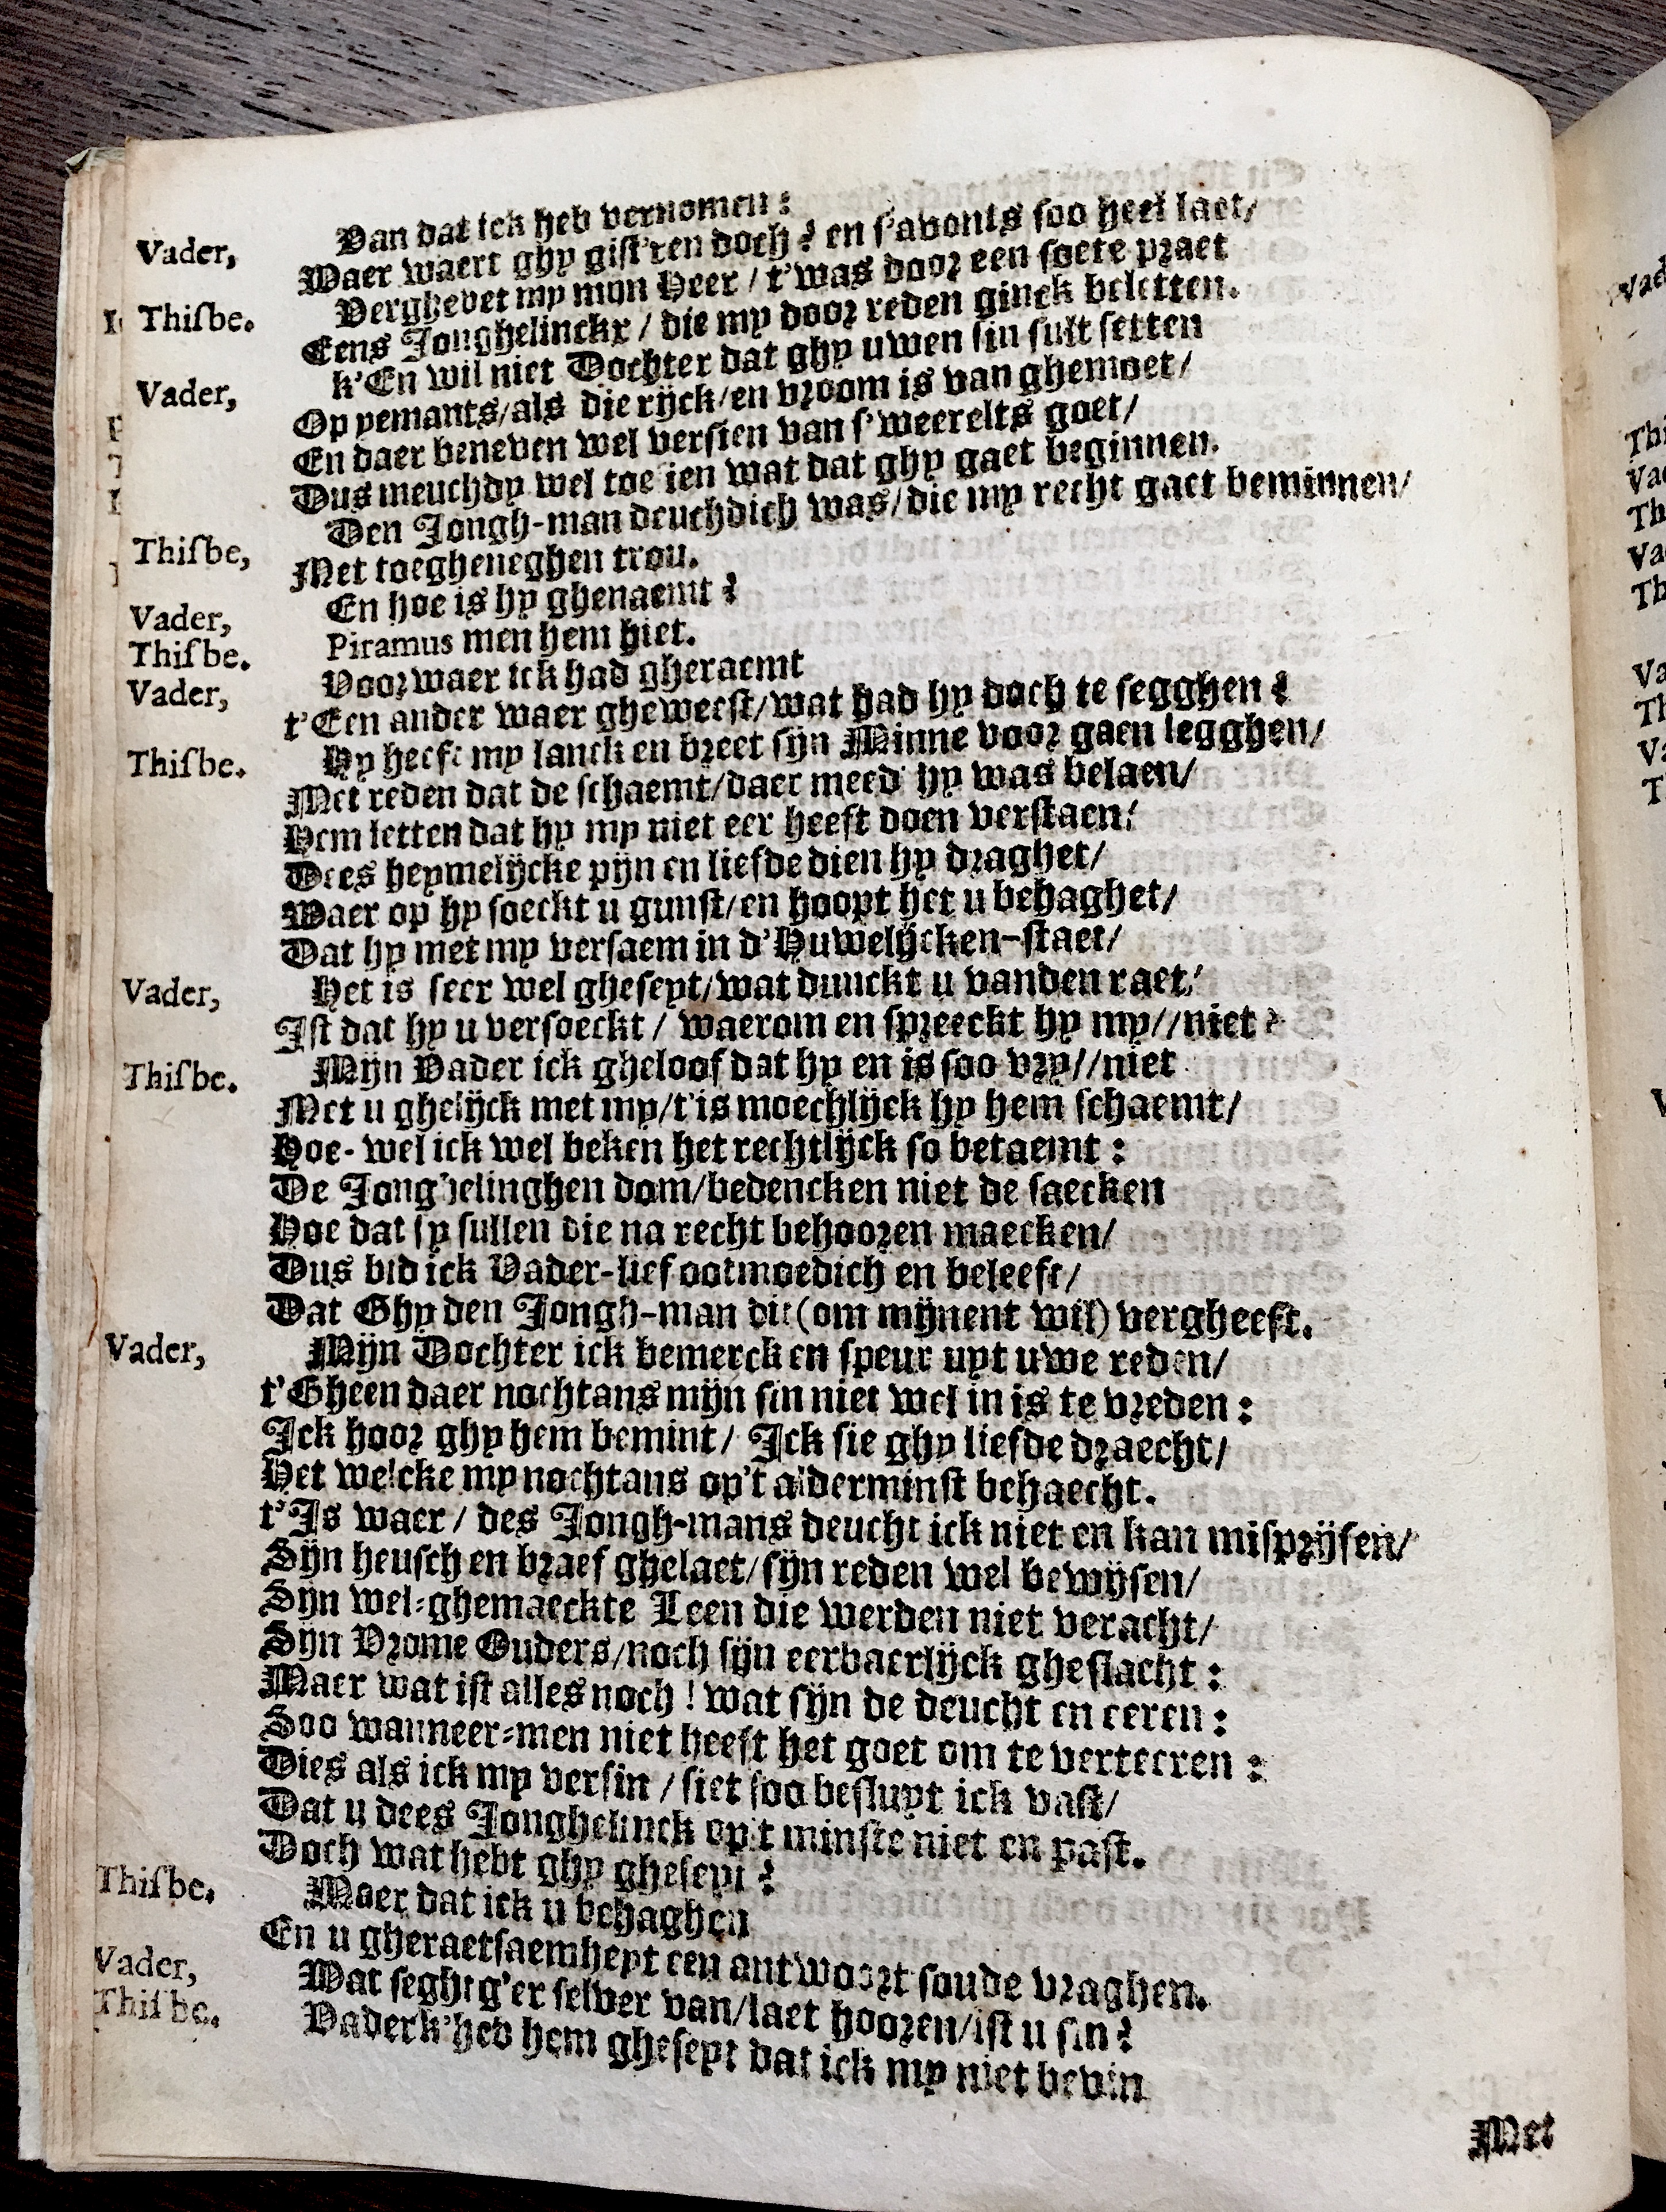 Van dat ick heb vernomen:
Vader, Waer waert ghy gist'ren doch? en s'avonts soo heel laet/
Thisbe. Verghevet my mijn Heer / t'was door een soete praet
Eens Jonghelinckx / die my door reden ginck beletten.
Vader, k'En wil niet Dochter dat ghy uwen sin sult setten
Op yemants/als die rijck/en vroom is van ghemoet/
En daer beneven wel versien van s'weerelts goet/
Dus meuchdy wel toe sien wat dat ghy gaet beginnen.
Thisbe, Den Jongh-man deuchdich was/die my recht gaet beminnen/
Met toegheneghen trou.
Vader, En hoe is hy ghenaemt?
Thisbe. Piramus men hem hiet.
Vader, Voorwaer ick had gheraemt
t'Een ander waer gheweest/wat had hy doch te segghen?
Thisbe. Hy heeft my lanck en breet sijn Minne voor gaen legghen/
Met reden dat de schaemt/daer meed' hy was belaen/
Hem letten dat hy my niet eer heeft doen verstaen/
Dees heymelijcke pijn en liefde dien hy draghet/
Waer op hy soeckt u gunst/en hoopt het u behaghet/
Dat hy met my versaem in d'Huwelijcken-staet/
Vader, Het is seer wel gheseyt/wat dunckt u vanden raet/
Ist dat hy u versoeckt / waerom en spreeckt hy my//niet?
Thisbe. Mijn Vader ick gheloof dat hy en is soo vry//niet
Met u ghelijck met my/t'is moechlijck hy hem schaemt/
Hoe-wel ick wel beken het rechtlijck so betaemt:
De Jong'helinghen dom/bedencken niet de saecken
Hoe dat sy sullen die na recht behooren maecken/
Dus bid ick Vader-lief ootmoedich en beleeft/
Dat Ghy den Jongh-man dit (om mijnent wil) vergheeft.
Vader, Mijn Dochter ick bemerck en speur uyt uwe reden/
t'Gheen daer nochtans mijn sin niet wel in is te vreden:
Ick hoor ghy hem bemint/ Ick sie ghy liefde draecht/
Het welcke my nochtans op't alderminst behaecht.
t'Is waer / des Jongh-mans deucht ick niet en kan misprijsen/
Sijn heusch en braef ghelaet/sijn reden wel bewijsen/
Sijn wel-ghemaeckte Leen die werden niet veracht/
Sijn Vrome Ouders/noch sijn eerbaerlijck gheslacht:
Maer wat ist alles noch! wat sijn de deucht en eeren:
Soo wanneer-men niet heeft het goet om te verteeren:
Dies als ick my versin / siet soo besluyt ick vast/
Dat u dees Jonghelinck op't minste niet en past.
Doch wat hebt ghy gheseyt?
Thisbe. Maer dat ick u behaghen
En u gheraetsaemheyt een antwoort soude vraghen.
Vader, Wat seght g'er selver van/laet hooren/ist u sin?
Thisbe. Vader k'heb hem gheseyt dat ick my niet bevin
Met